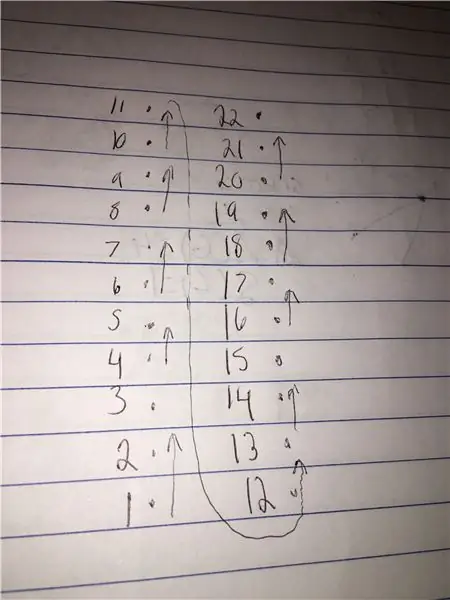 11 . 22 .
10 . 21 .
9 . 20 .
8 . 19 .
7 . 18 .
6 . 17 .
5 . 16 .
4 . 15 .
3 . 14 .
2 . 13 .
1 . 12 .